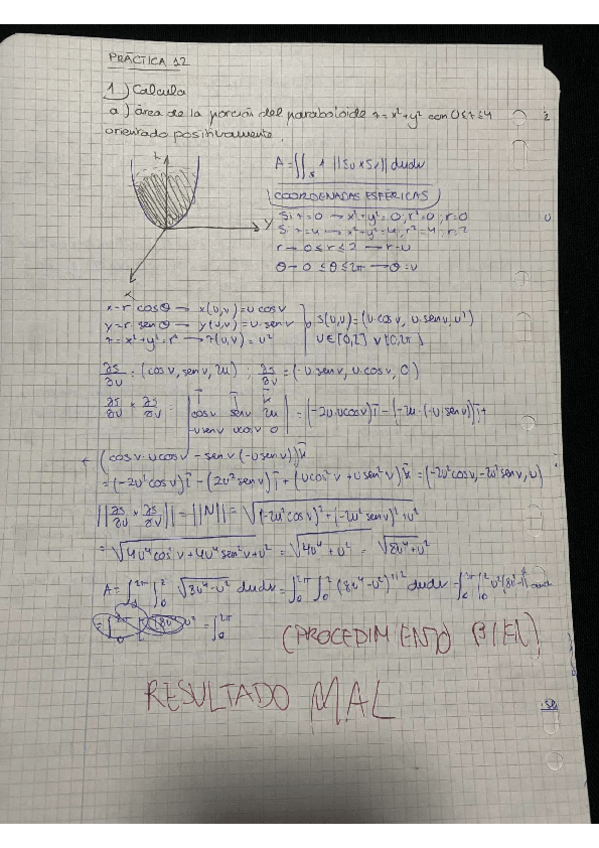 PRÁCTICA 12
1) Calcula
a) área de la porción del paraboloide z=x²+y² con 0≤z≤4
orientado positivamente.
A=∬_S 1 ||Su×Sv|| dudv
COORDENADAS ESFÉRICAS
Si z=0 → x²+y²=0, r²=0; r=0
Si z=4 → x²+y²=4, r²=4; r=2
r → 0≤r≤2 → r=u
θ → 0≤θ≤2π → θ=v
Y
X
x=r cosθ → x(u,v)=u cosv
y=r senθ → y(u,v)=u·senv
z=x²+y²=r² → z(u,v)=u²
S(u,v)=(u·cosv, u·senv, u²)
u∈[0,2] v[0,2π]
∂s/∂u=(cosv, senv, 2u); ∂s/∂v=(-u·senv, u·cosv, 0)
∂s/∂u × ∂s/∂v = | i j k | cosv senv 2u | -usenv ucosv 0 | = (-2u·ucosv)i - (-2u·(-u·senv))j+
+ (cosv·ucosv - senv(-usenv))k
=(-2u²cosv)i - (2u²senv)j + (ucos²v+usen²v)k = (-2u²cosv, -2u²senv, u)
||∂s/∂u × ∂s/∂v|| = ||N|| = √((-2u²cosv)²+(-2u²senv)²+u²
=√(4u⁴cos²v+4u⁴sen²v+u²) = √(4u⁴+u²) = √(8u⁴+u²)
(PROCEDIMIENTO BIEN)
RESULTADO MAL